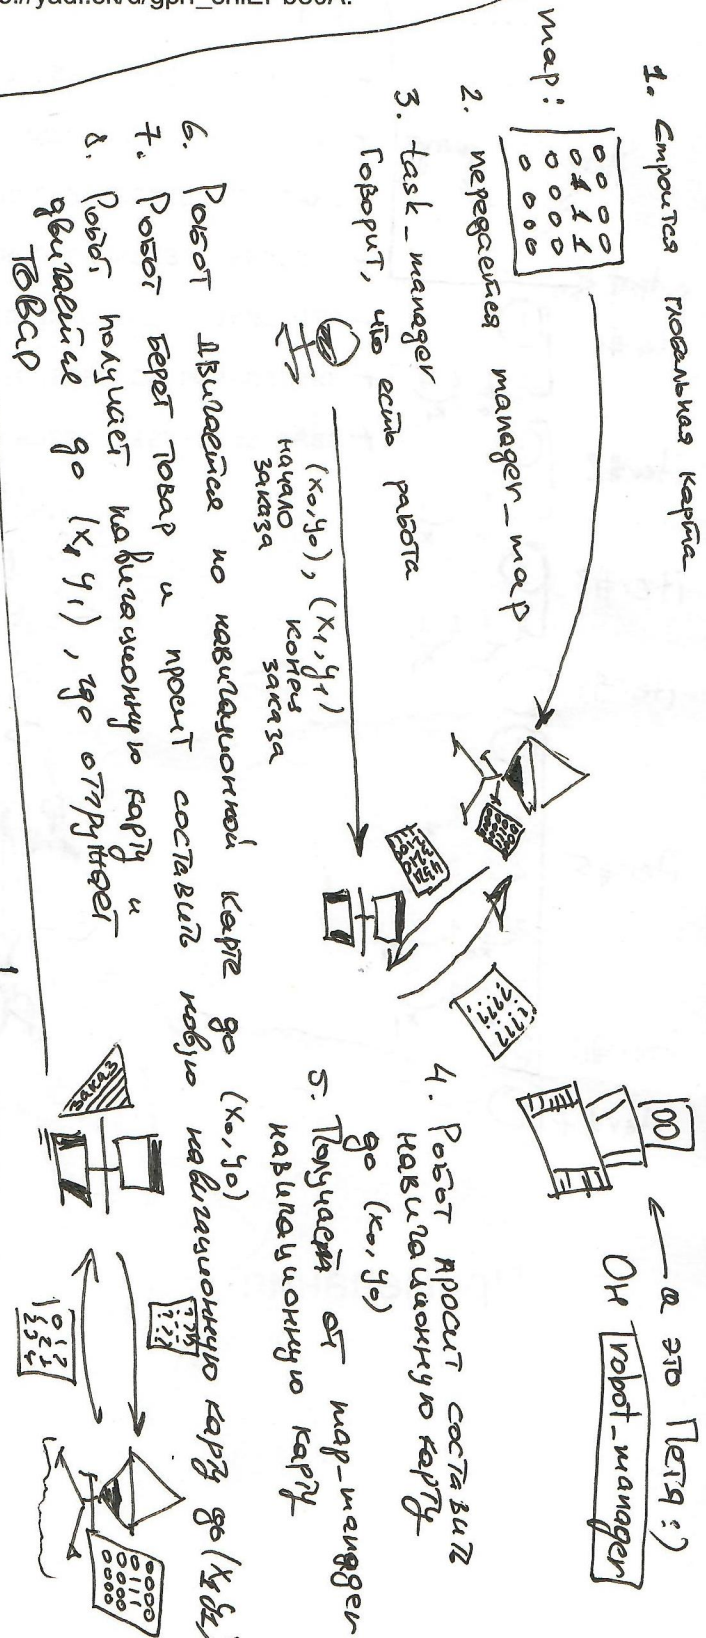 1. Строится глобальная карта
map:
0000
0111
0000
0000
2. передается manager_map
3. task_manager
говорит, что есть работа
(x₀,y₀), (x₁,y₁)
начало заказа
конец заказа
а это Петя :)
Он robot_manager
4. Робот просит составить
навигационную карту
до (x₀, y₀)
5. Получает от map-manager
навигационную карту
6. Робот двигается по навигационной карте до (x₀, y₀)
7. Робот берет товар и просит составить новую навигационную карту до
8. Робот получает навигационную карту и
двигается до (x₁ y₁), где отгружает
товар
заказ